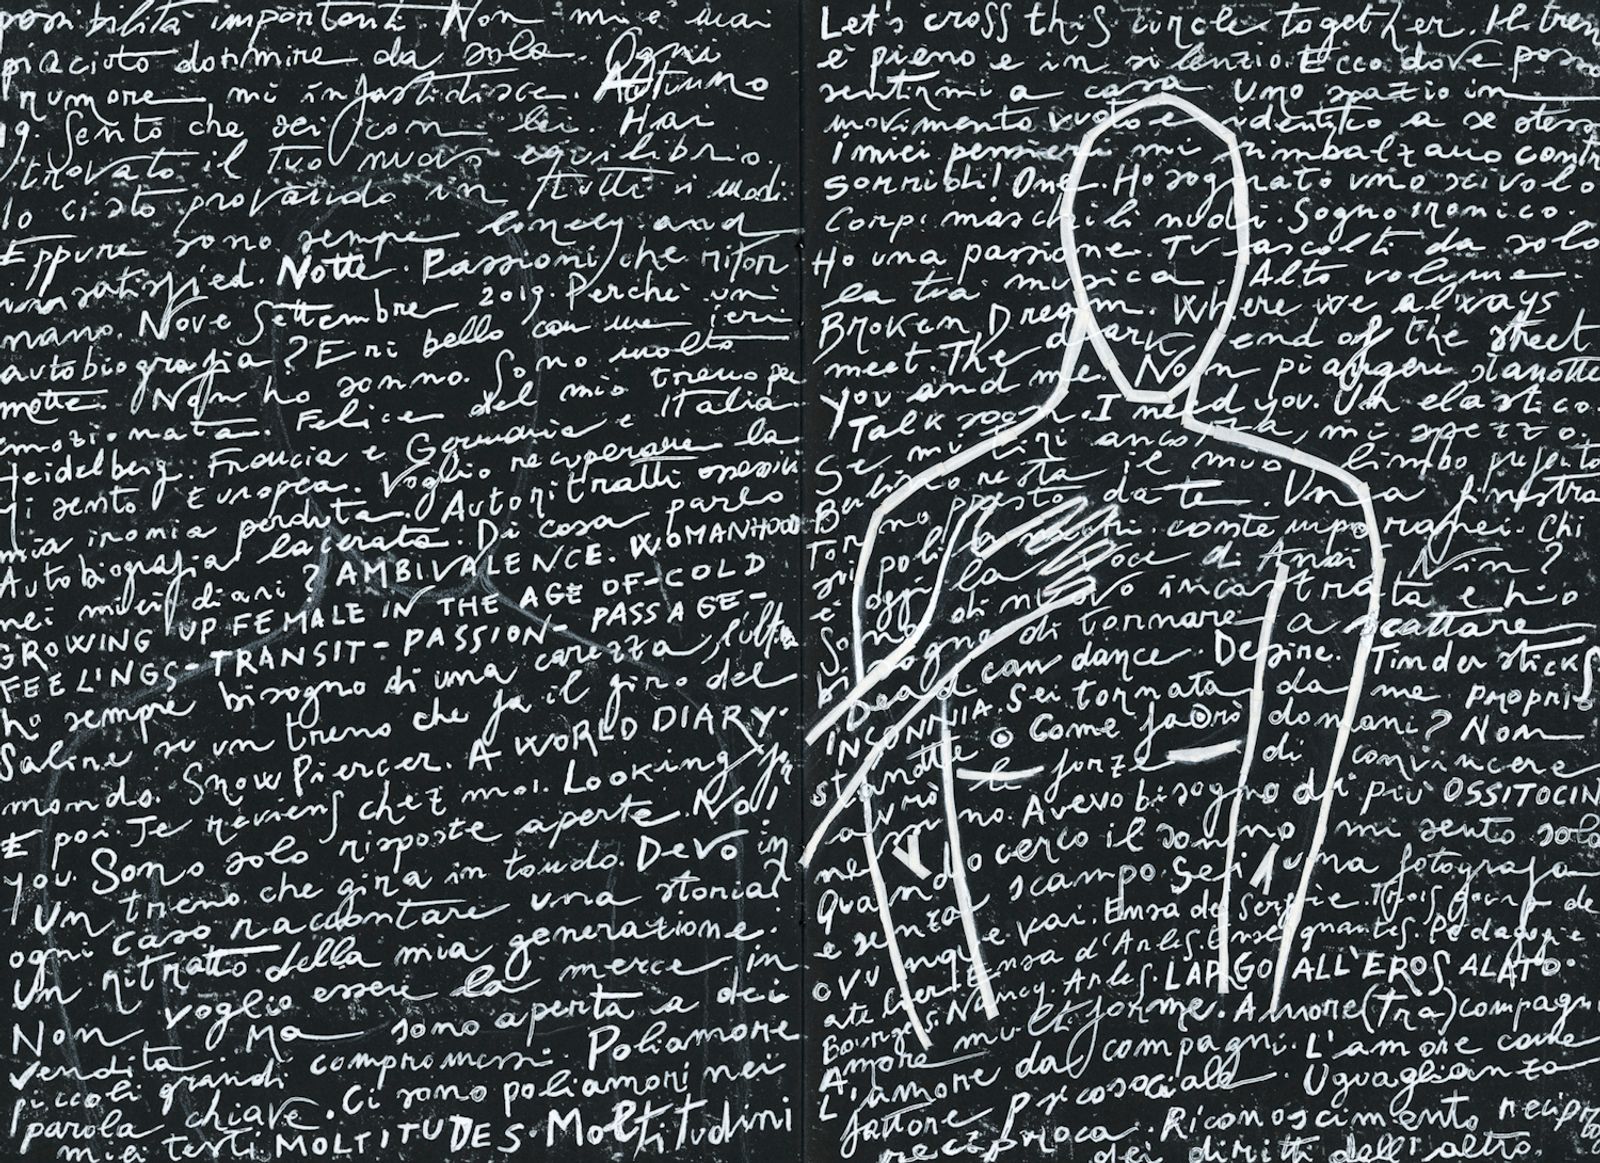 possibilità importanti. Non mi è mai
piaciuto dormire da sola. Ogni
rumore mi infastidisce. Autunno
19. Sento che sei con lei. Hai
trovato il tuo nuovo equilibrio.
Io ci sto provando in tutti i modi.
Eppure sono sempre lonely and
unsatisfied. Notte. Passioni che ritor
nano. Nove Settembre 2019. Perché un'
autobiografia? Eri bello con me ieri
notte. Non ho sonno. Sono molto
emozionata. Felice del mio treno per
Heidelberg. Francia e Germania e Italia
Mi sento Europea. Voglio recuperare la
mia ironia perduta. Autoritratti ossessivi
Autobiografia lacerata. Di cosa parlo
nei miei diari? AMBIVALENCE. WOMANHOOD
GROWING UP FEMALE IN THE AGE OF-COLD
FEELINGS-TRANSIT-PASSION-PASSAGE-
ho sempre bisogno di una carezza, l'ultima
Salire su un treno che fa il giro del
mondo. SnowPiercer. A WORLD DIARY.
E poi. Je reviens chez moi. Looking for
you. Sono solo risposte aperte. No!
Un treno che gira in tondo. Devo in
ogni caso raccontare una storia?
Un ritratto della mia generazione.
Non voglio essere la merce in
vendita. Ma sono aperta a dei
piccoli grandi compromessi. Poliamore
parola chiave. Ci sono poliamori nei
miei testi MOLTITUDES. Moltitudini
Let's cross this circle together. Il tren
è pieno e in silenzio. Ecco dove posso
sentirmi a casa. Uno spazio in
movimento vuoto e identico a se stesso
I miei pensieri mi rimbalzano contro
sorrisi! One. Ho sognato uno scivolo
Corpi maschili nudi. Sogno ironico.
Ho una passione. Tu ascolti da solo
la tua musica. Alto volume
Broken Dream. Where we always
meet. The dark end of the street
You and me. Non piangere stanotte
Talk soon. I need you. Un elastico.
Se mi tiri ancora, mi spezzo.
resta il mio limbo preferito
Torno presto da te. Una finestra
sui poli contemporanei. Chi
è oggi la voce di Anaïs Nin?
Sono di nuovo incastrata e ho
bisogno di tornare a scattare
Dead can dance. Desire. Tindersticks
INSONNIA. Sei tornata da me proprio
stanotte. Come farò domani? Non
avrò le forze di convincere
nessuno. Avevo bisogno di più OSSITOCIN
Quando cerco il sonno mi sento sola
e senza scampo. Sei una fotografa
ovunque vai. Ensa de Sergie. Trois gouro de
atelier Ensa d'Arles. Enseignantes. Pedagogie
Bourges. Nancy. Arles. LARGO ALL'EROS ALATO.
Amore multiforme. Amore (tra) compagni
L'amore dai compagni. L'amore come
fattore psicosociale. Uguaglianza
reciproca. Riconoscimento recipro
dei diritti dell'altro.